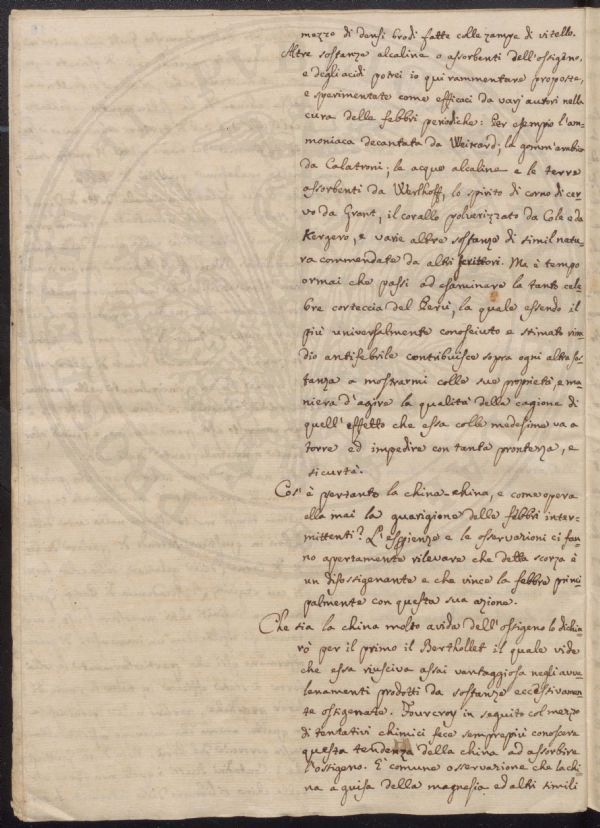 mezzo di densi brodi fatte colle zampe di vitello.
Altre sostanze alcaline o assorbenti dell'ossigeno,
e degli acidi potrei io qui rammentare proposte,
e sperimentate come efficaci da varj autori nella
cura delle febbri periodiche: Per esempio l'am-
moniaca decantata da Weircard; la gomm'ambra
da Calatroni; le acque alcaline e le terre
assorbenti da Werlhoff, lo spirito di corno di cer-
vo da Grant, il corallo polverizzato da Cole e da
Kergero, e varie altre sostanze di simil natu-
ra commendate da altri scrittori. Ma è tempo
ormai che passi ad esaminare la tanto cele-
bre corteccia del Perù, la quale essendo il
più universalmente conosciuto e stimato rim-
dio antifebrile contribuisce sopra ogni altra sos-
tanza a mostrarmi colle sue proprietà e ma-
niera d'agire la qualità della cagione di
quell'effetto che essa colle medesime va a
torre ed impedire con tanta prontezza, e
sicurtà.
Cos'è pertanto la china-china, e come opera
ella mai la guarigione delle febbri inter-
mittenti? L'esperienze e le osservazioni ci fan-
no apertamente rilevare che detta scorza è
un disossigenante e che vince la febbre princi-
palmente con questa sua azione.
Che sia la china molto avida dell'ossigeno lo dichia-
rò per il primo il Berthollet il quale vide
che essa riusciva assai vantaggiosa negli avve-
lenamenti prodotti da sostanze eccessivamen-
te ossigenate. Fourcroy in seguito col mezzo
di tentativi chimici fece semprepiù conoscere
questa tendenza della china ad assorbire
l'ossigeno. È comune osservazione che la chi-
na a guisa della magnesia ed altri simili